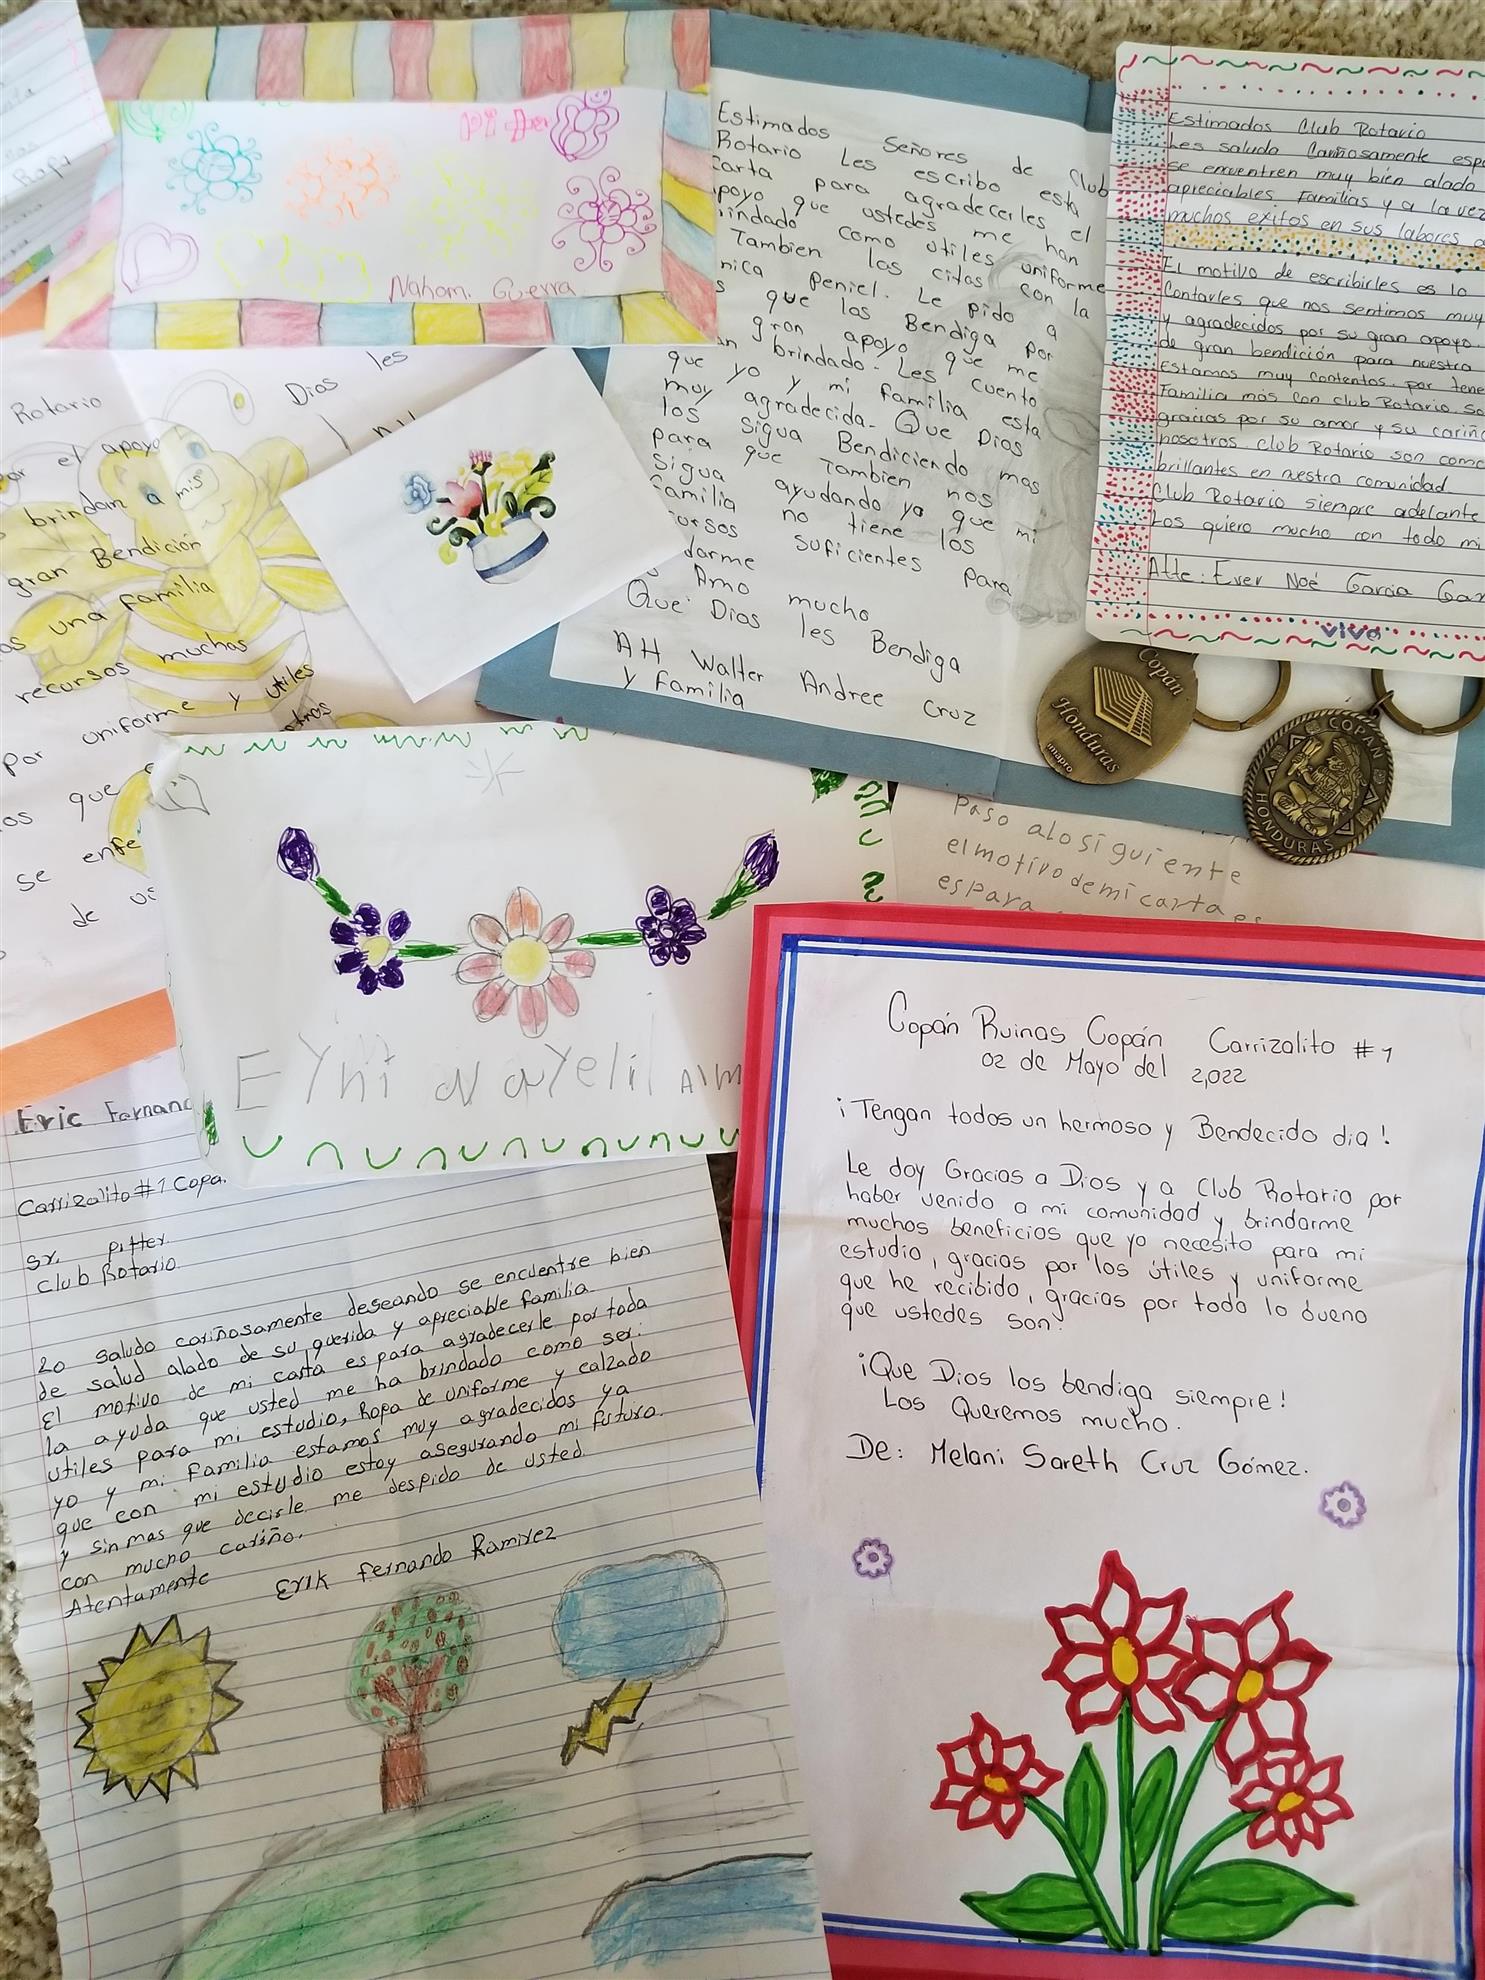 pi
Nahom. Guerra
Rotario
Dios les
por el apoyo
brindan a mis
gran Bendición
una familia
recursos muchas
Por uniforme y utiles
que
se enfe
de us
Estimados Señores de Club
Rotario Les escribo esta
carta para agradecerles el
apoyo que ustedes me han
brindado como utiles uniforme
Tambien las citas con la
nica Peniel. Le pido a
s que los Bendiga por
gran apoyo que me
an brindado. Les cuento
que yo y mi familia esta
muy agradecida. Que Dios
los sigua Bendiciendo mas
para que Tambien nos
sigua ayudando ya que mi
familia no tiene los
cursos suficientes para
darme
Amo mucho
Que Dios les Bendiga
AH Walter Andree Cruz
y familia
Estimados Club Rotario
Les saluda Cariñosamente espe
se encuentren muy bien alado
apreciables Familias y a la vez
muchos exitos en sus labores
El motivo de escribirles es la
Contarles que nos sentimos muy
y agradecidos por su gran apoyo.
de gran bendición para nuestra
Estamos muy contentos. por tene
Familia más con club Rotario. so
gracias por su amor y su cariño
nosotros. club Rotario son como
brillantes en nuestra comunidad.
Club Rotario siempre adelante
Los quiero mucho con todo mi
Atte: Ever Noé Garcia Gar
vivo
Copán
Honduras
imapro
COPAN
HONDURAS
Paso alo siguiente
el motivo de mi carta es
es para
Eyni Nayeli Alm
Copán Ruinas Copán Carrizalito #1
02 de Mayo del 2,022
¡Tengan todos un hermoso y Bendecido dia!
Le doy Gracias a Dios y a Club Rotario por
haber venido a mi comunidad y brindarme
muchos beneficios que yo necesito para mi
estudio, gracias por los útiles y uniforme
que he recibido, gracias por todo lo bueno
que ustedes son.
¡Que Dios los bendiga siempre!
Los Queremos mucho.
De: Melani Sareth Cruz Gómez.
Eric Fernand
Carrizalito #1 Copa.
Sr. pitter
Club Rotario.
Lo saludo cariñosamente deseando se encuentre bien
de salud alado de su querida y apreciable familia.
El motivo de mi carta es para agradecerle por toda
la ayuda que usted me ha brindado como ser:
utiles para mi estudio, Ropa de uniforme y calzado
yo y mi familia estamos muy agradecidos ya
que con mi estudio estoy asegurando mi futuro.
y sin mas que decirle me despido de usted.
con mucho cariño.
Atentamente
Erik Fernando Ramirez